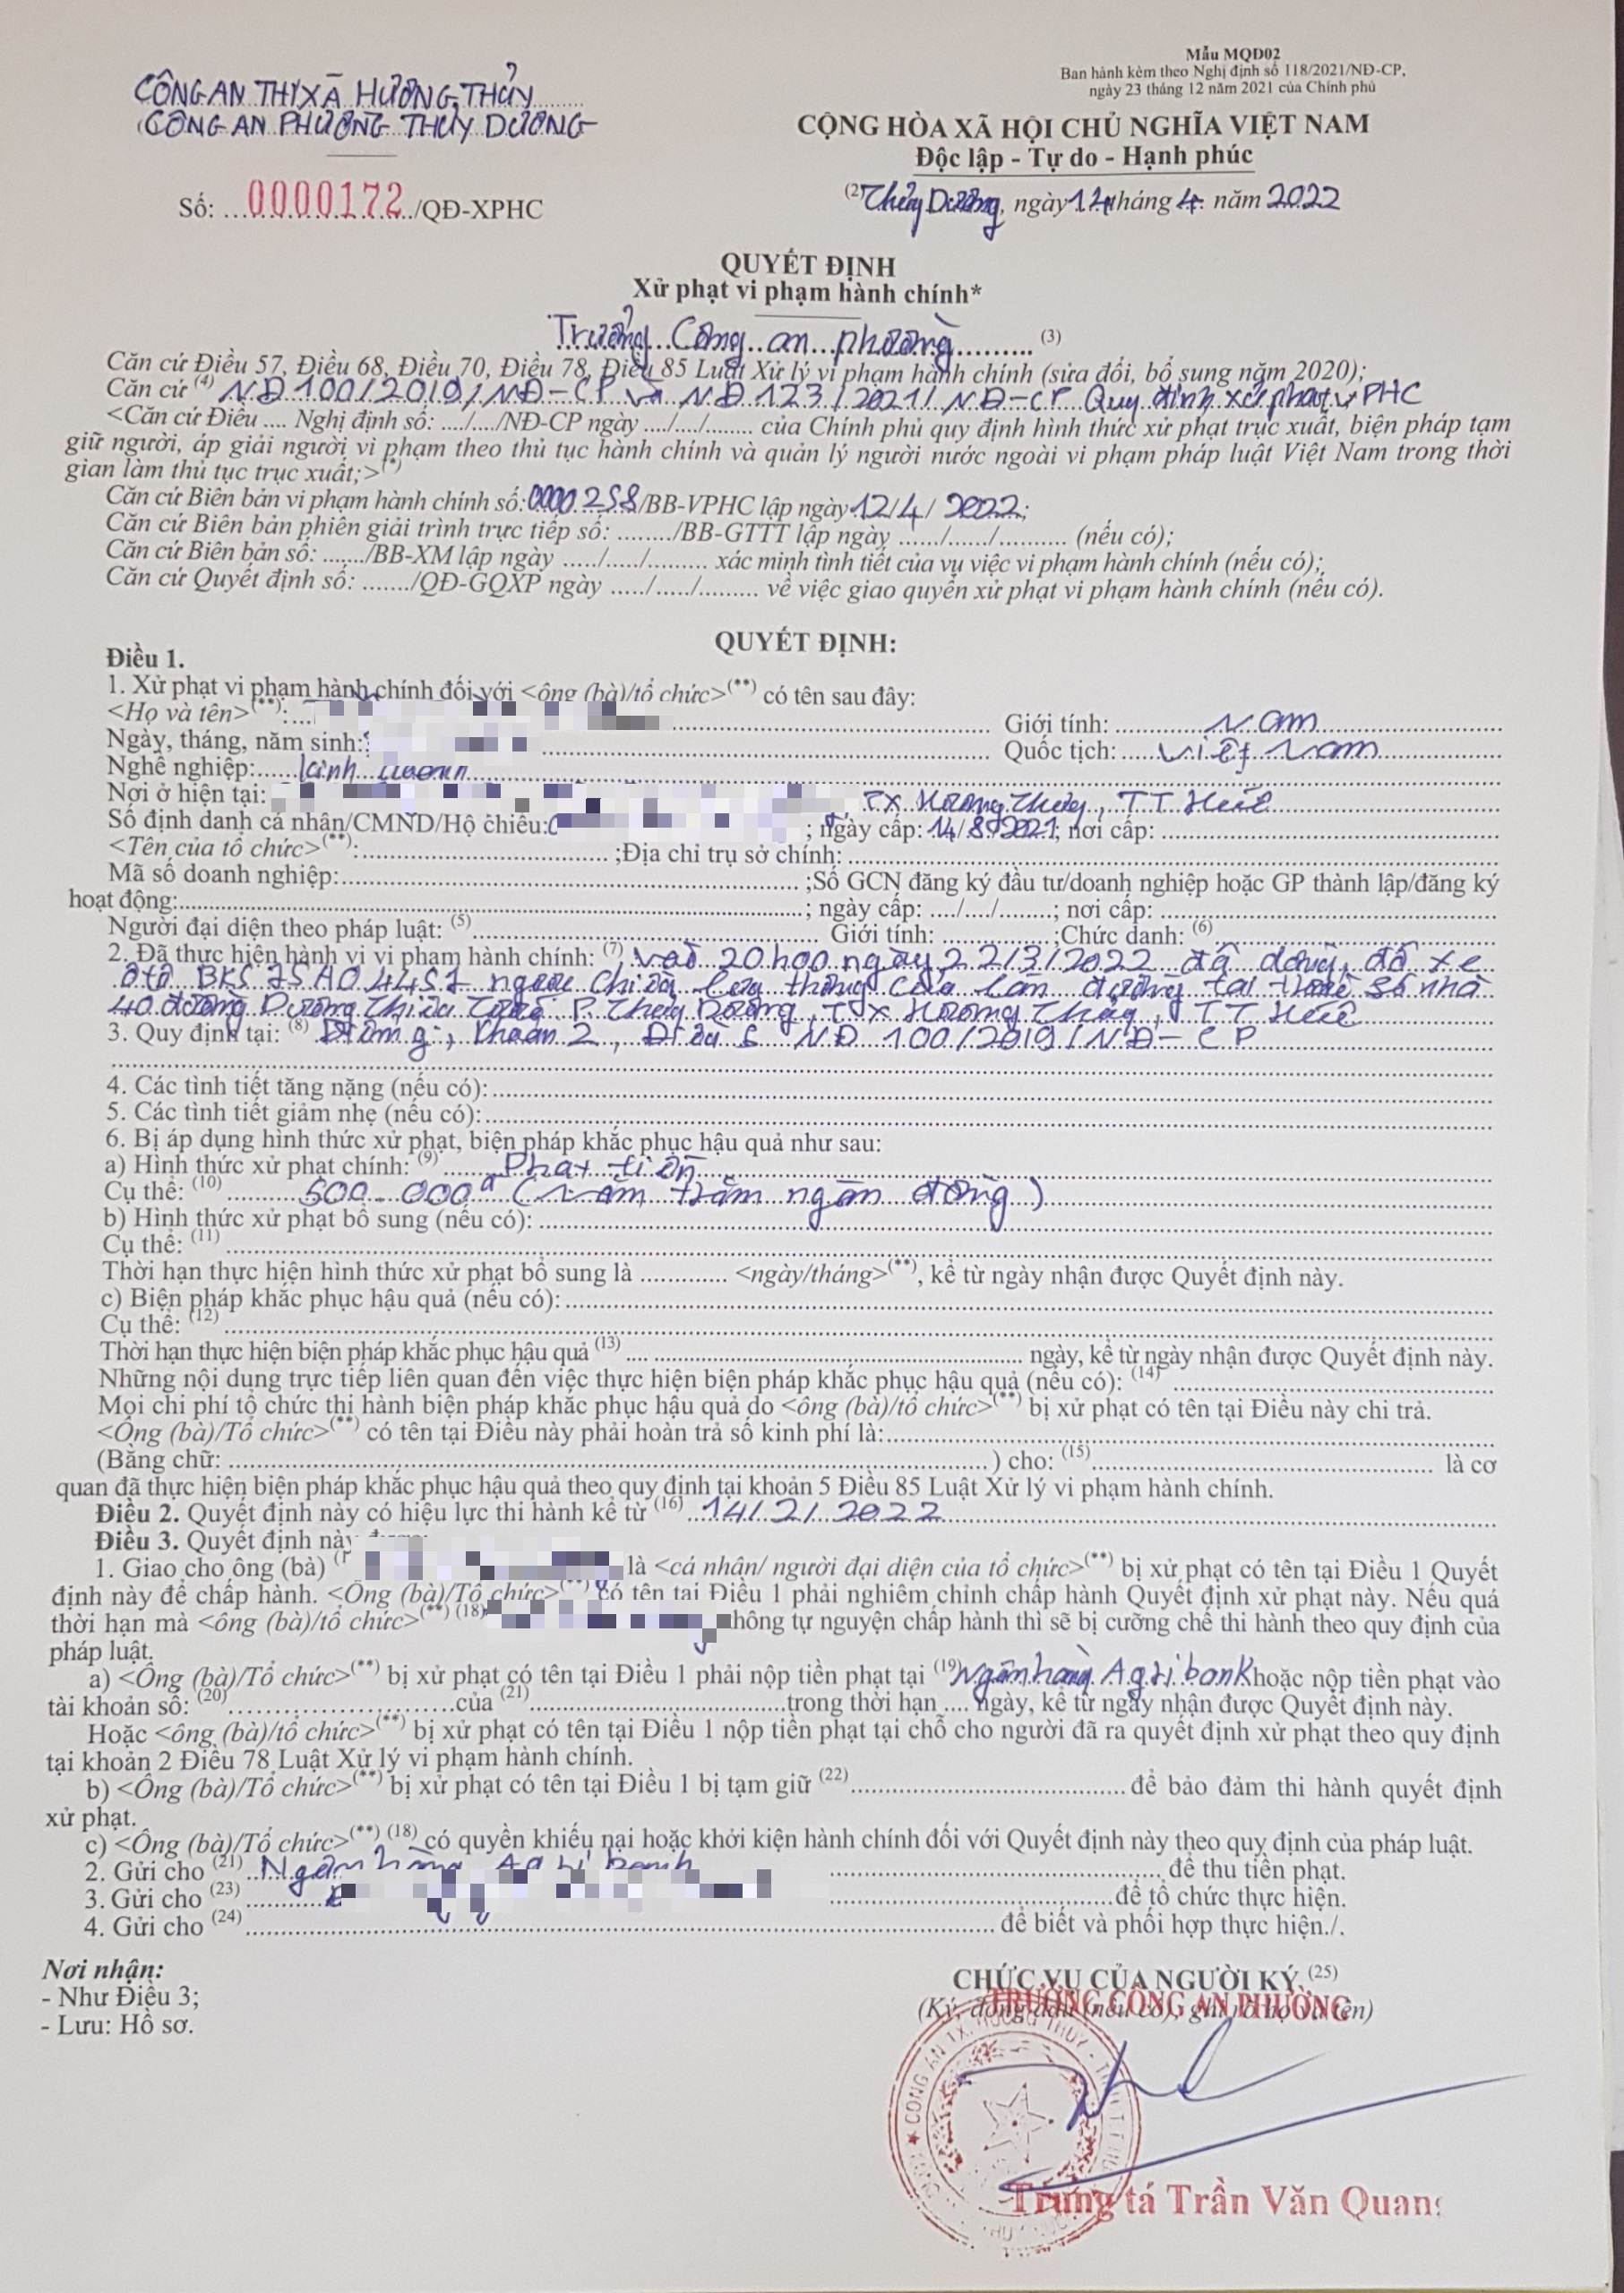 Mẫu MQĐ02
Ban hành kèm theo Nghị định số 118/2021/NĐ-CP,
ngày 23 tháng 12 năm 2021 của Chính phủ
CÔNG AN THỊ XÃ HƯƠNG THỦY
CÔNG AN PHƯỜNG THỦY DƯƠNG
CỘNG HÒA XÃ HỘI CHỦ NGHĨA VIỆT NAM
Độc lập - Tự do - Hạnh phúc
Số: ...0000172.../QĐ-XPHC
(2) Thủy Dương, ngày 14 tháng 4 năm 2022
QUYẾT ĐỊNH
Xử phạt vi phạm hành chính*
Trưởng Công an phường (3)
Căn cứ Điều 57, Điều 68, Điều 70, Điều 78, Điều 85 Luật Xử lý vi phạm hành chính (sửa đổi, bổ sung năm 2020);
Căn cứ (4) NĐ 100/2019/NĐ-CP và NĐ 123/2021/NĐ-CP Quy định xử phạt VPHC
<Căn cứ Điều .... Nghị định số: ..../..../NĐ-CP ngày ..../..../........ của Chính phủ quy định hình thức xử phạt trục xuất, biện pháp tạm
giữ người, áp giải người vi phạm theo thủ tục hành chính và quản lý người nước ngoài vi phạm pháp luật Việt Nam trong thời
gian làm thủ tục trục xuất;>(*)
Căn cứ Biên bản vi phạm hành chính số: 0000258/BB-VPHC lập ngày 12/4/2022;
Căn cứ Biên bản phiên giải trình trực tiếp số: ......../BB-GTTT lập ngày ....../....../.......... (nếu có);
Căn cứ Biên bản số: ......./BB-XM lập ngày ...../...../......... xác minh tình tiết của vụ việc vi phạm hành chính (nếu có);
Căn cứ Quyết định số: ......./QĐ-GQXP ngày ...../...../......... về việc giao quyền xử phạt vi phạm hành chính (nếu có).
QUYẾT ĐỊNH:
Điều 1.
1. Xử phạt vi phạm hành chính đối với <ông (bà)/tổ chức>(**) có tên sau đây:
<Họ và tên>(**): Giới tính: Nam
Ngày, tháng, năm sinh: Quốc tịch: Việt Nam
Nghề nghiệp: Kinh doanh
Nơi ở hiện tại: TX Hương Thủy, TT Huế
Số định danh cá nhân/CMND/Hộ chiếu: ; ngày cấp: 14/8/2021; nơi cấp:
<Tên của tổ chức>(**): ;Địa chỉ trụ sở chính:
Mã số doanh nghiệp: ;Số GCN đăng ký đầu tư/doanh nghiệp hoặc GP thành lập/đăng ký
hoạt động: ; ngày cấp: ..../..../.......; nơi cấp:
Người đại diện theo pháp luật: (5) Giới tính: ;Chức danh: (6)
2. Đã thực hiện hành vi vi phạm hành chính: (7) vào 20h00 ngày 22/3/2022 đã dừng, đỗ xe
ôtô BKS 75A04451 ngược chiều lưu thông của làn đường tại trước số nhà
40 đường Dương Thiệu Tước P. Thủy Dương, TX Hương Thủy, TT Huế
3. Quy định tại: (8) Điểm g, khoản 2, Điều 5 NĐ 100/2019/NĐ-CP
4. Các tình tiết tăng nặng (nếu có):
5. Các tình tiết giảm nhẹ (nếu có):
6. Bị áp dụng hình thức xử phạt, biện pháp khắc phục hậu quả như sau:
a) Hình thức xử phạt chính: (9) Phạt tiền
Cụ thể: (10) 500.000đ (Năm trăm ngàn đồng)
b) Hình thức xử phạt bổ sung (nếu có):
Cụ thể: (11)
Thời hạn thực hiện hình thức xử phạt bổ sung là ............. <ngày/tháng>(**), kể từ ngày nhận được Quyết định này.
c) Biện pháp khắc phục hậu quả (nếu có):
Cụ thể: (12)
Thời hạn thực hiện biện pháp khắc phục hậu quả (13) ngày, kể từ ngày nhận được Quyết định này.
Những nội dung trực tiếp liên quan đến việc thực hiện biện pháp khắc phục hậu quả (nếu có): (14)
Mọi chi phí tổ chức thi hành biện pháp khắc phục hậu quả do <ông (bà)/tổ chức>(**) bị xử phạt có tên tại Điều này chi trả.
<Ông (bà)/Tổ chức>(**) có tên tại Điều này phải hoàn trả số kinh phí là:
(Bằng chữ: ) cho: (15) là cơ
quan đã thực hiện biện pháp khắc phục hậu quả theo quy định tại khoản 5 Điều 85 Luật Xử lý vi phạm hành chính.
Điều 2. Quyết định này có hiệu lực thi hành kể từ (16) 14/2/2022
Điều 3. Quyết định này được
1. Giao cho ông (bà) là <cá nhân/ người đại diện của tổ chức>(**) bị xử phạt có tên tại Điều 1 Quyết
định này để chấp hành. <Ông (bà)/Tổ chức>(**) có tên tại Điều 1 phải nghiêm chỉnh chấp hành Quyết định xử phạt này. Nếu quá
thời hạn mà <ông (bà)/tổ chức>(**) (18) không tự nguyện chấp hành thì sẽ bị cưỡng chế thi hành theo quy định của
pháp luật.
a) <Ông (bà)/Tổ chức>(**) bị xử phạt có tên tại Điều 1 phải nộp tiền phạt tại (19) Ngân hàng Agribank hoặc nộp tiền phạt vào
tài khoản số: (20) của (21) trong thời hạn .... ngày, kể từ ngày nhận được Quyết định này.
Hoặc <ông (bà)/tổ chức>(**) bị xử phạt có tên tại Điều 1 nộp tiền phạt tại chỗ cho người đã ra quyết định xử phạt theo quy định
tại khoản 2 Điều 78 Luật Xử lý vi phạm hành chính.
b) <Ông (bà)/Tổ chức>(**) bị xử phạt có tên tại Điều 1 bị tạm giữ (22) để bảo đảm thi hành quyết định
xử phạt.
c) <Ông (bà)/Tổ chức>(**) (18) có quyền khiếu nại hoặc khởi kiện hành chính đối với Quyết định này theo quy định của pháp luật.
2. Gửi cho (21) Ngân hàng Agribank để thu tiền phạt.
3. Gửi cho (23) để tổ chức thực hiện.
4. Gửi cho (24) để biết và phối hợp thực hiện./.
Nơi nhận:
- Như Điều 3;
- Lưu: Hồ sơ.
CHỨC VỤ CỦA NGƯỜI KÝ (25)
(Ký, đóng dấu (nếu có), ghi rõ họ và tên)
TRƯỞNG CÔNG AN PHƯỜNG
Trung tá Trần Văn Quang